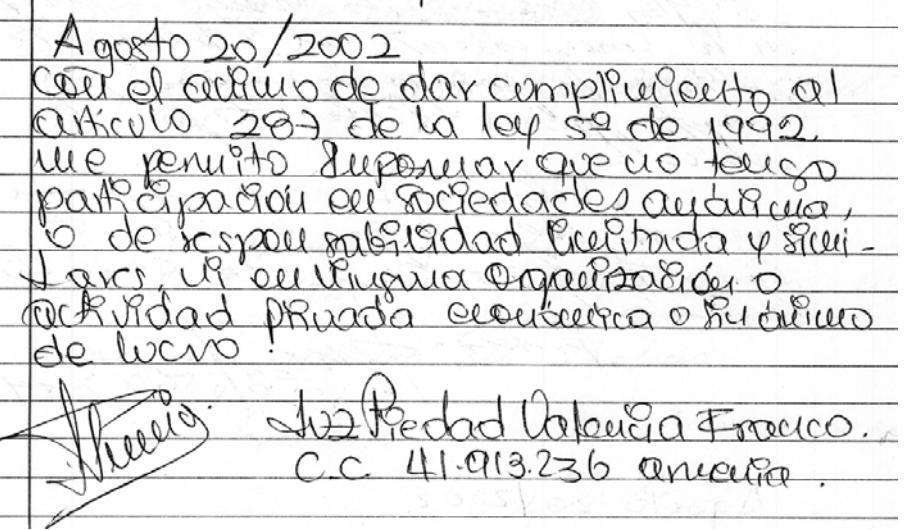 Agosto 20/2002
con el animo de dar complimiento al
articulo 287 de la ley 5ª de 1992
me permito Informar que no tengo
participación en sociedades anónima,
o de responsabilidad limitada y simi-
lares, ni en ninguna Organización o
actividad privada económica o sin ánimo
de lucro!
Luz Piedad Valencia Franco.
C.C. 41.913.236 armenia.